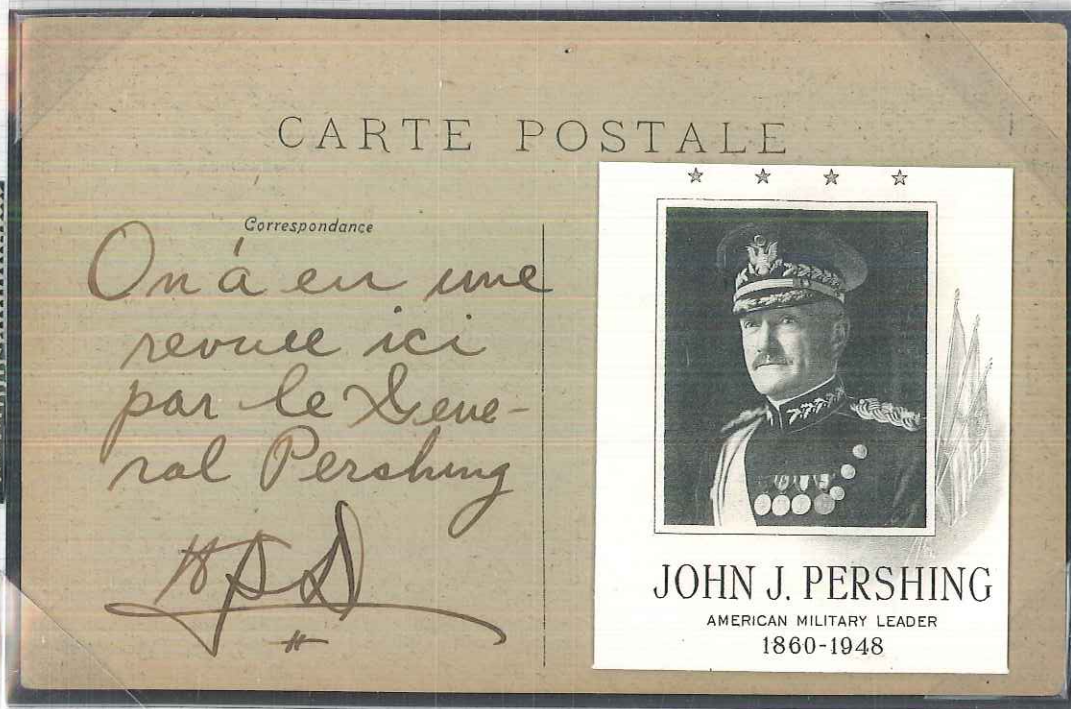 CARTE POSTALE
Correspondance
On à eu une
revuee ici
par le Géné-
ral Pershing
★ ★ ★ ★
JOHN J. PERSHING
AMERICAN MILITARY LEADER
1860-1948